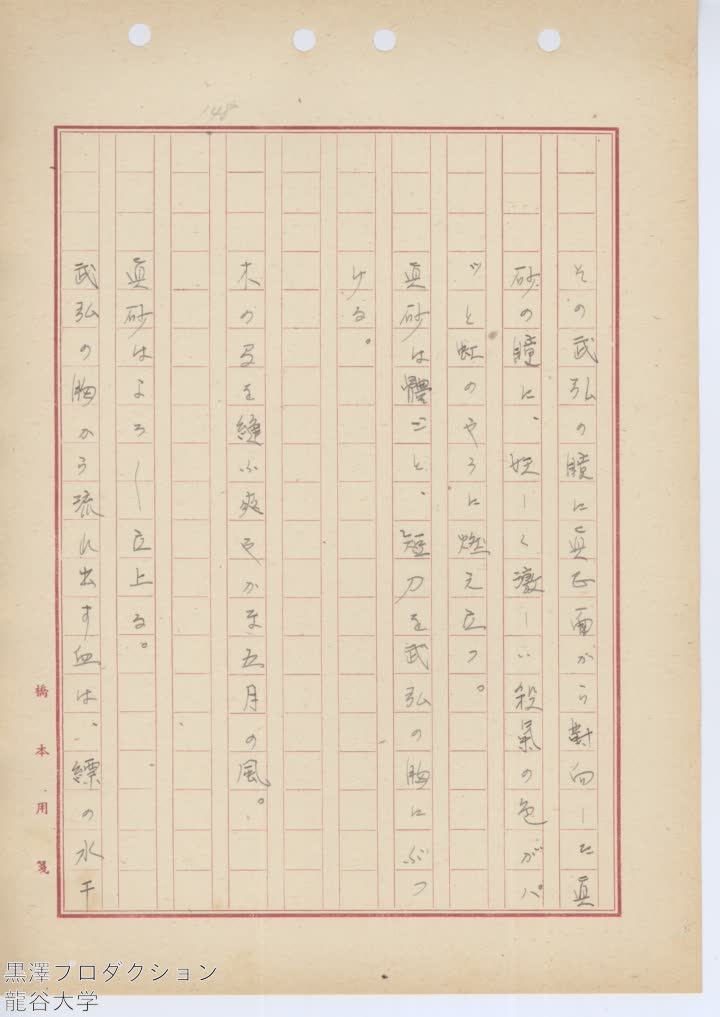 148
その武弘の瞳に真正面から對向した真
砂の瞳に、妖しく激しい殺氣の色がパ
ッと虹のやうに燃え立つ。
真砂は體ごと、短刀を武弘の胸にぶつ
ける。
木の間を縫ふ爽やかな五月の風。
真砂はよろ〳〵立上る。
武弘の胸から流れ出す血は、縹の水干
橋本用箋
黒澤プロダクション
龍谷大学